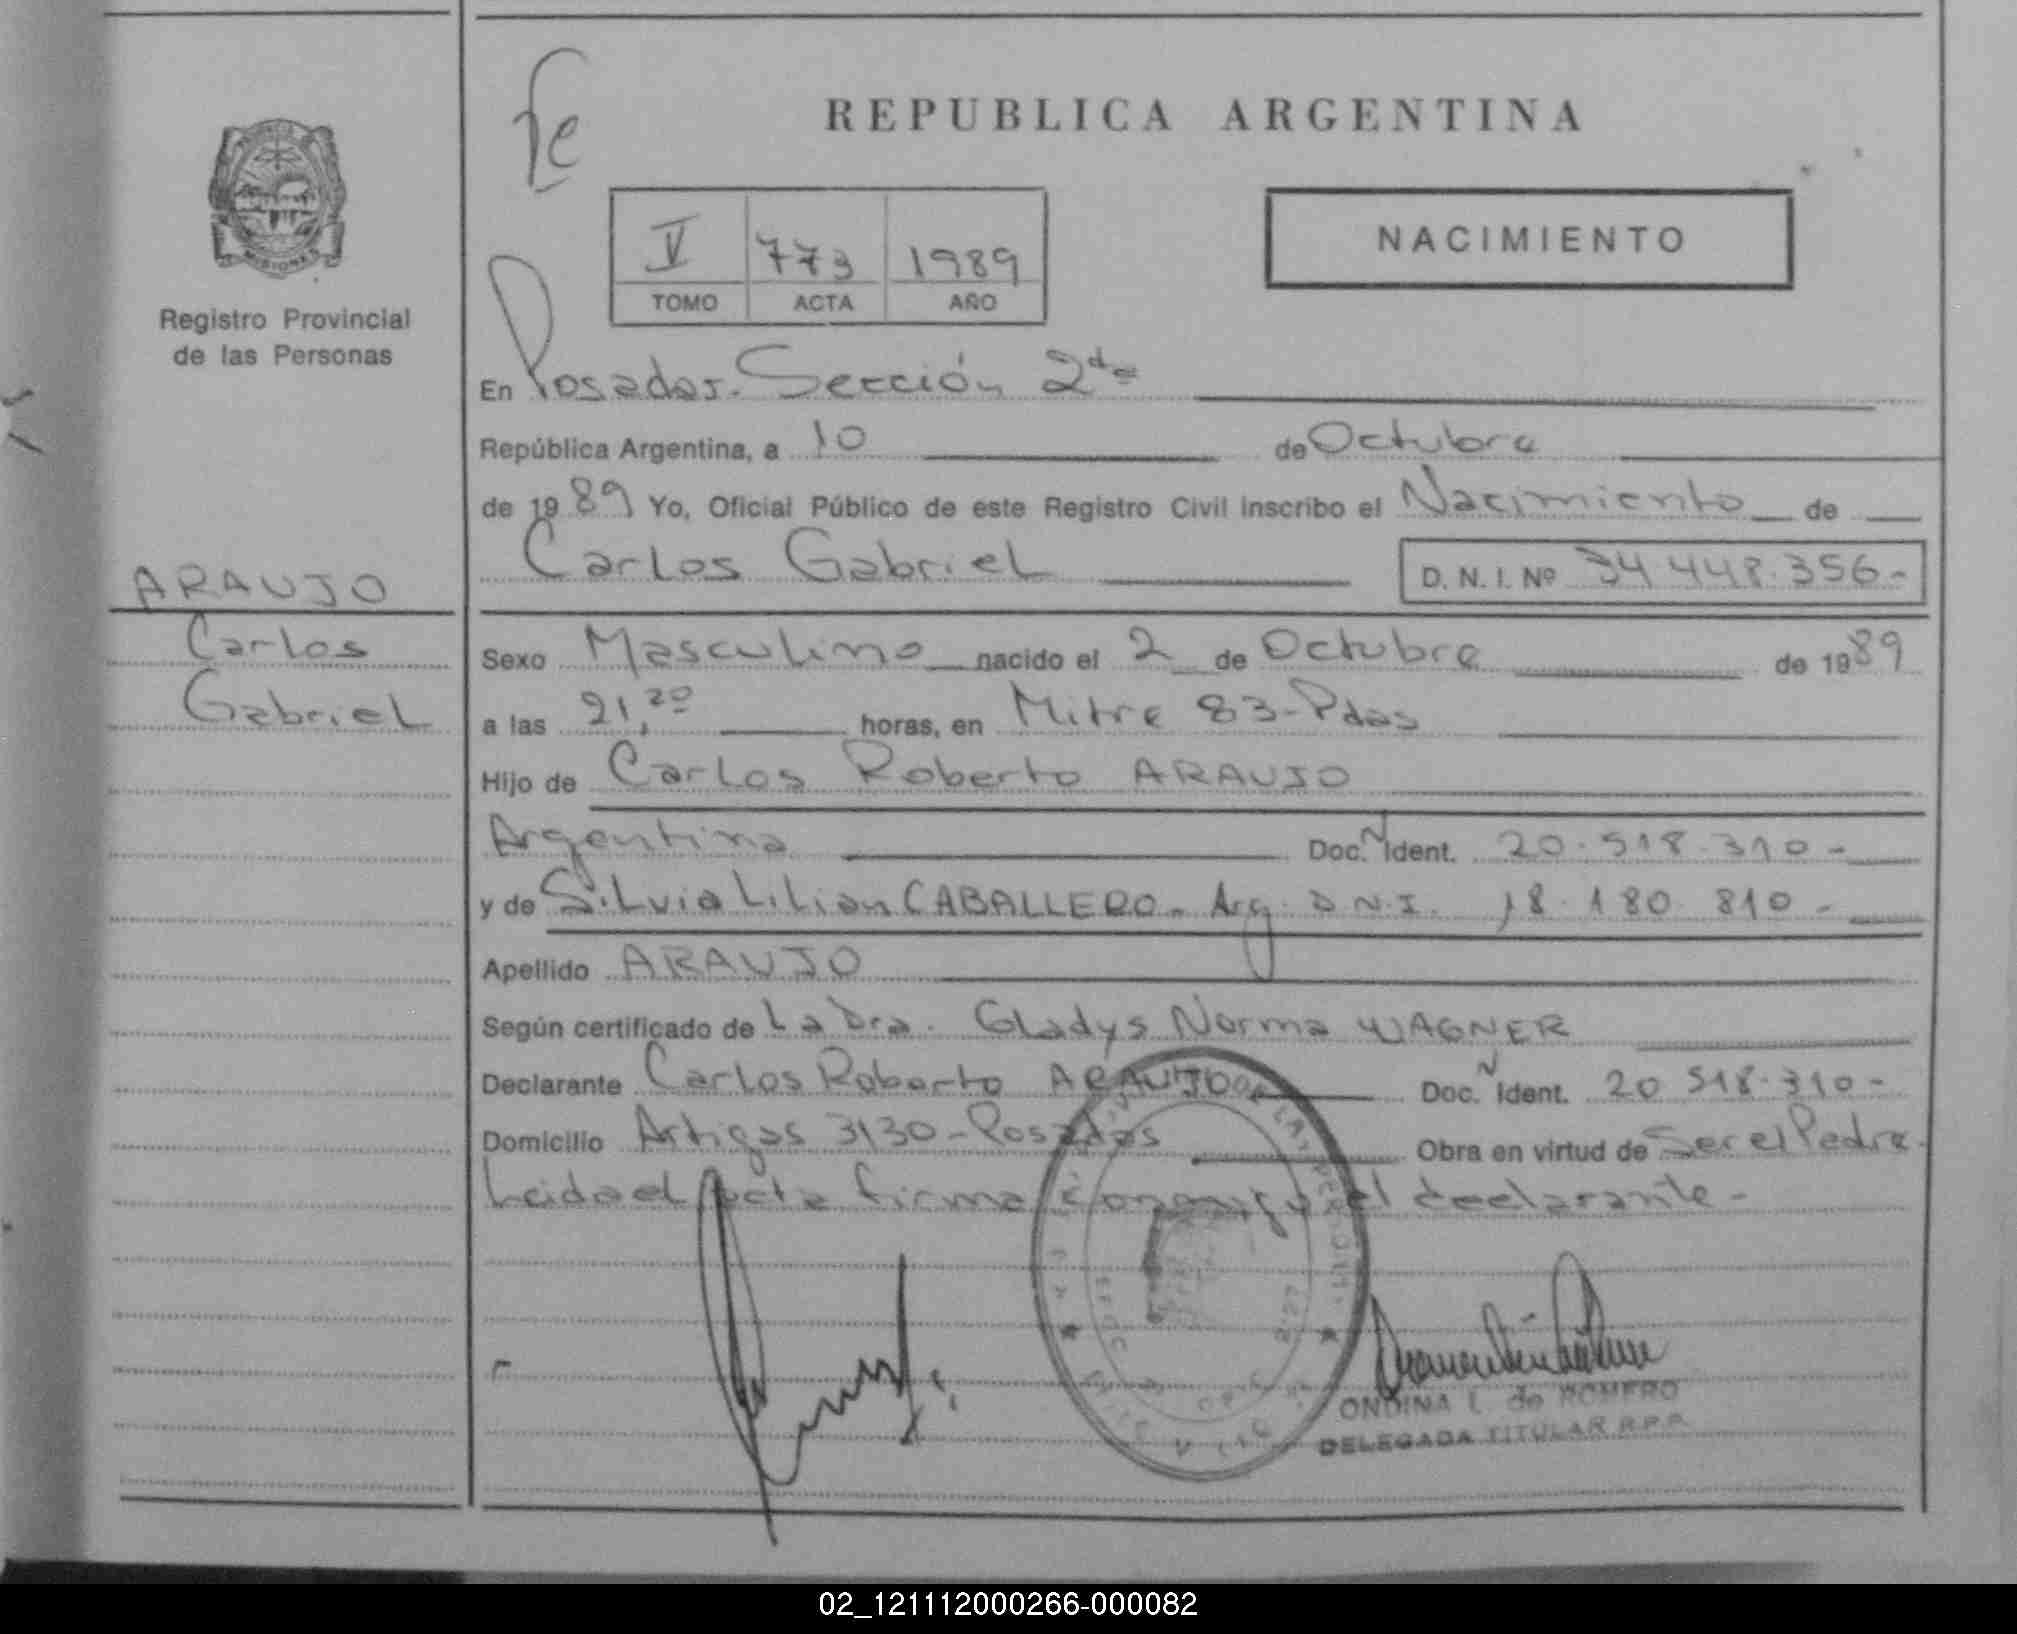 Fe
REPUBLICA ARGENTINA
V 773 1989
TOMO ACTA AÑO
NACIMIENTO
MISIONES
Registro Provincial
de las Personas
En Posadas. Sección 2da
República Argentina, a 10 de Octubre
de 1989 Yo, Oficial Público de este Registro Civil inscribo el Nacimiento de
Carlos Gabriel D. N. I. Nº 34 448.356-
ARAUJO
Carlos
Gabriel
Sexo Masculino nacido el 2 de Octubre de 1989
a las 21,20 horas, en Mitre 83-Pdas
Hijo de Carlos Roberto ARAUJO
Argentina Doc. N Ident. 20.518.310-
y de Silvia Lilian CABALLERO- Arg. D.N.I. 18.180.810-
Apellido ARAUJO
Según certificado de La Dra. Gladys Norma WAGNER
Declarante Carlos Roberto ARAUJO Doc. N Ident. 20 518.310-
Domicilio Artigas 3130-Posadas Obra en virtud de Ser el Padre.
Leida el acta firma conmigo el declarante-
ONDINA L. de ROMERO
DELEGADA TITULAR R.P.P.
02_121112000266-000082